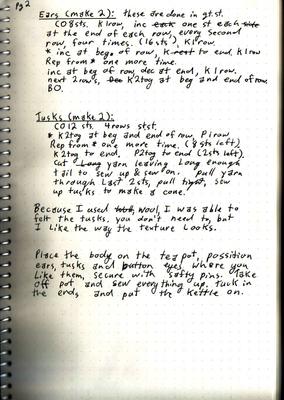 pg 2
Ears (make 2): these are done in gt.st.
CO 8sts. K1row, inc each one st each side
at the end of each row, every second
row, four times. (16sts), K1row.
* inc at beg of row, K rest to end, K1row
Rep from * one more time.
inc at beg of row, dec at end, K1row.
next 2rows, Dec K2tog at beg and end of row.
BO.
Tusks (make 2):
CO 12 sts. 4 rows st st.
* K2tog at beg and end of row, P1row
Rep from * one more time. (8 sts left)
K2tog to end. P2tog to end (2sts left).
Cut Long yarn leaving Long enough
tail to sew up & sew on. pull yarn
through Last 2sts, pull tight, sew
up tucks to make a cone.
Because I used wool, I was able to
felt the tusks. you don't need to, but
I like the way the texture looks.
Place the body on the teapot, possition
ears, tusks and button eyes where you
Like them, secure with safty pins. Take
off pot and sew everything up. tuck in
the ends, and put the kettle on.